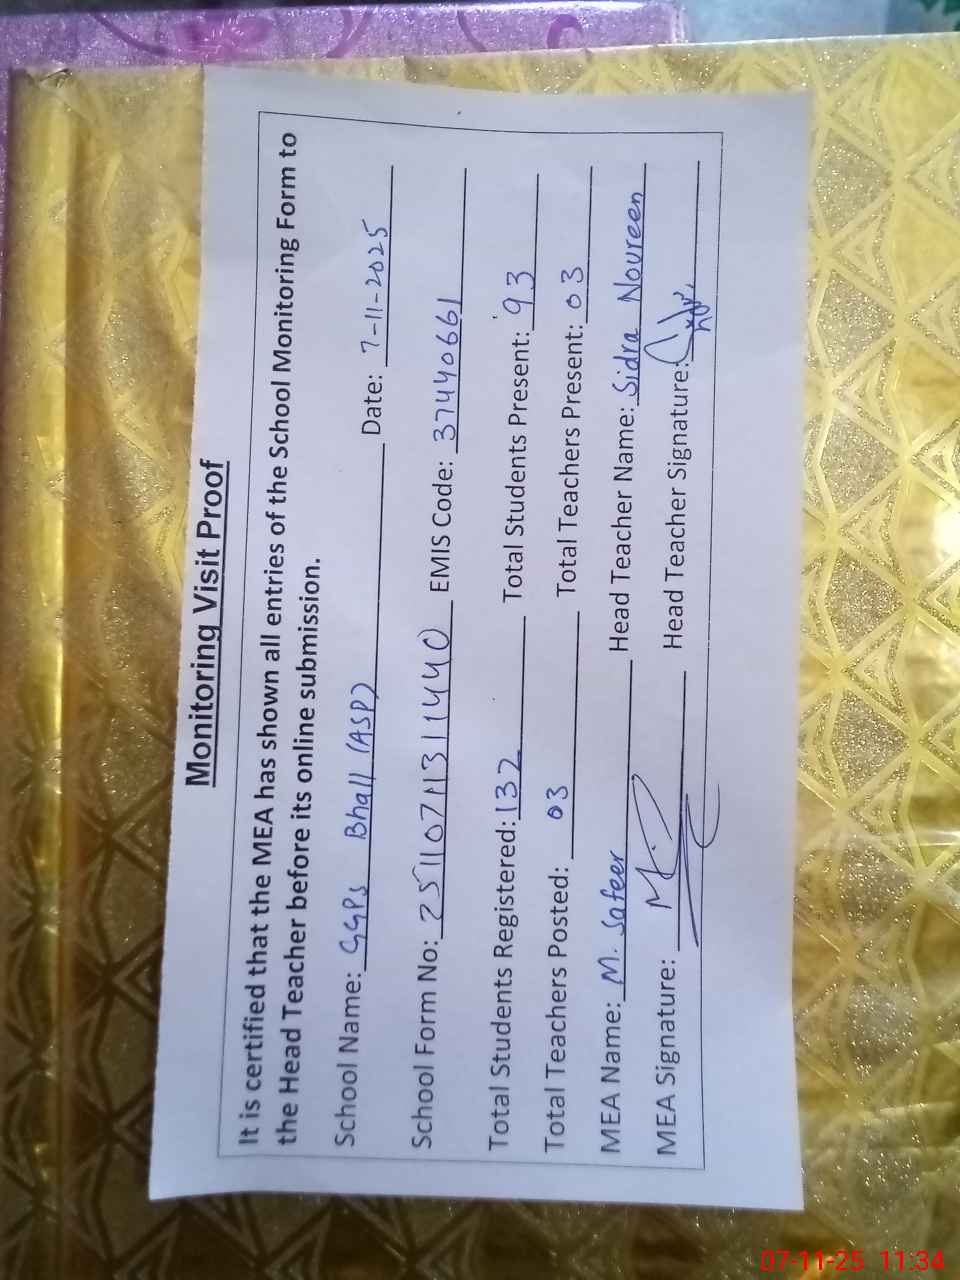 Monitoring Visit Proof
It is certified that the MEA has shown all entries of the School Monitoring Form to
the Head Teacher before its online submission.
School Name: GGPS Bhall (ASP) Date: 7-11-2025
School Form No: 251107113111440 EMIS Code: 37440661
Total Students Registered: 132 Total Students Present: 93
Total Teachers Posted: 03 Total Teachers Present: 03
MEA Name: M. Safeer Head Teacher Name: Sidra Noureen
MEA Signature: Head Teacher Signature:
07-11-25 11:34